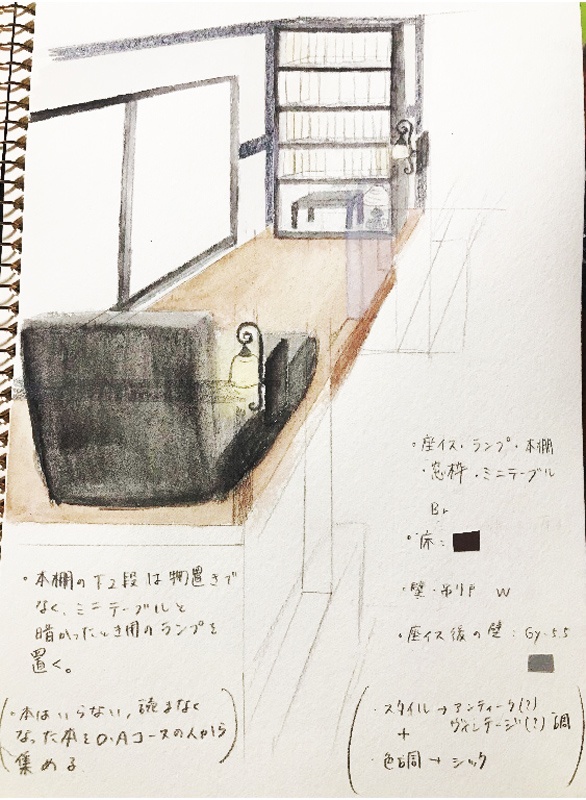 ・座イス・ランプ・本棚
・窓枠・ミニテーブル
Br
・床：
・壁・吊り戸 W
・座イス後の壁：Gy-5.5
・スタイル→アンティーク(?)
ヴィンテージ(?)調
+
・色調→シック
・本棚の下2段は物置きで
なく、ミニテーブルと
暗かったとき用のランプを
置く。
・本はいらない、読まなく
なった本をD・Aコースの人から
集める